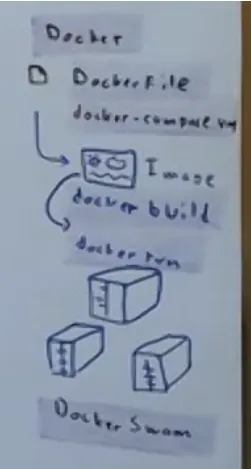 Docker
DockerFile
docker-compose
Image
docker build
docker run
Docker Swam